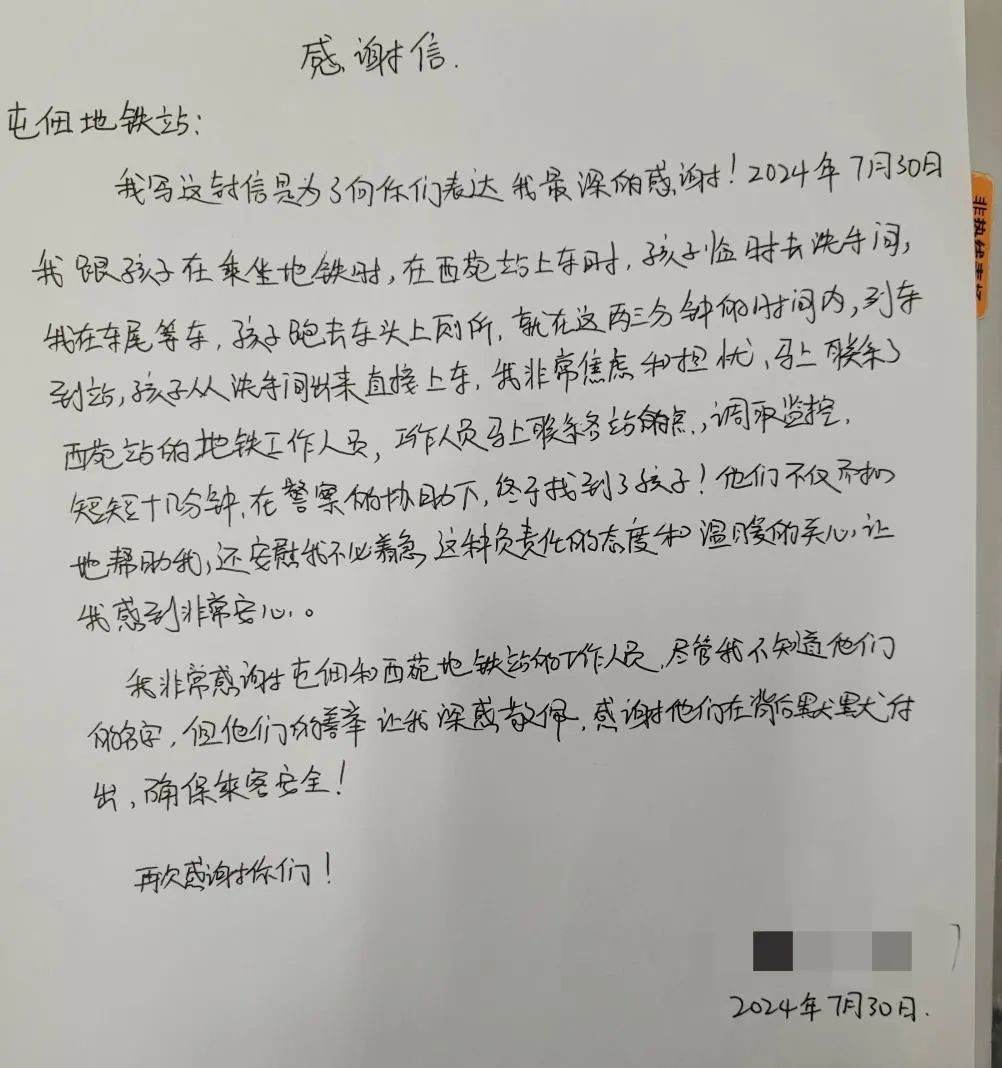 感谢信.
屯佃地铁站:
我写这封信是为了向你们表达我最深的感谢！2024年7月30日
我跟孩子在乘坐地铁时，在西苑站上车时，孩子临时去洗手间，
我在车尾等车，孩子跑去车头上厕所，就在这两三分钟的时间内，列车
到站，孩子从洗手间出来直接上车，我非常焦虑和担忧，马上联系了
西苑站的地铁工作人员，工作人员马上联系各站点，调取监控，
短短十几分钟，在警察的协助下，终于找到了孩子！他们不仅及时
地帮助我，还安慰我不必着急，这种负责任的态度和温暖的关心，让
我感到非常安心。
我非常感谢屯佃和西苑地铁站的工作人员，尽管我不知道他们
的名字，但他们的善举让我深感敬佩，感谢他们在背后默默付
出，确保乘客安全！
再次感谢你们！
2024年7月30日.